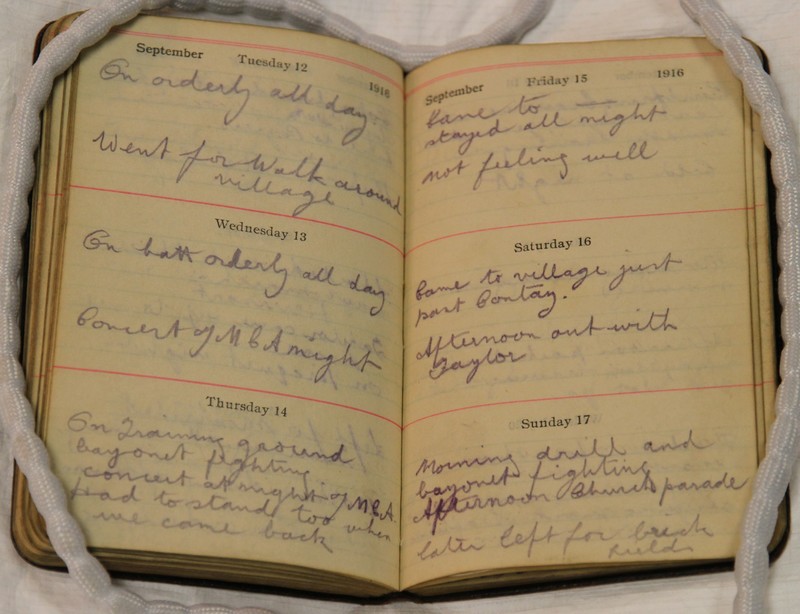 September Tuesday 12 1916
On orderly all day
Went for Walk around
village
Wednesday 13
On batt orderly all day
Concert YMCA night
Thursday 14
On Training ground
bayonet fighting
concert at night YMCA.
had to stand too when
we came back
September Friday 15 1916
Came to
stayed all night
not feeling well
Saturday 16
Came to village just
past Contay.
Afternoon out with
Taylor
Sunday 17
Morning drill and
bayonet fighting
Afternoon Church parade
later left for brick
fields